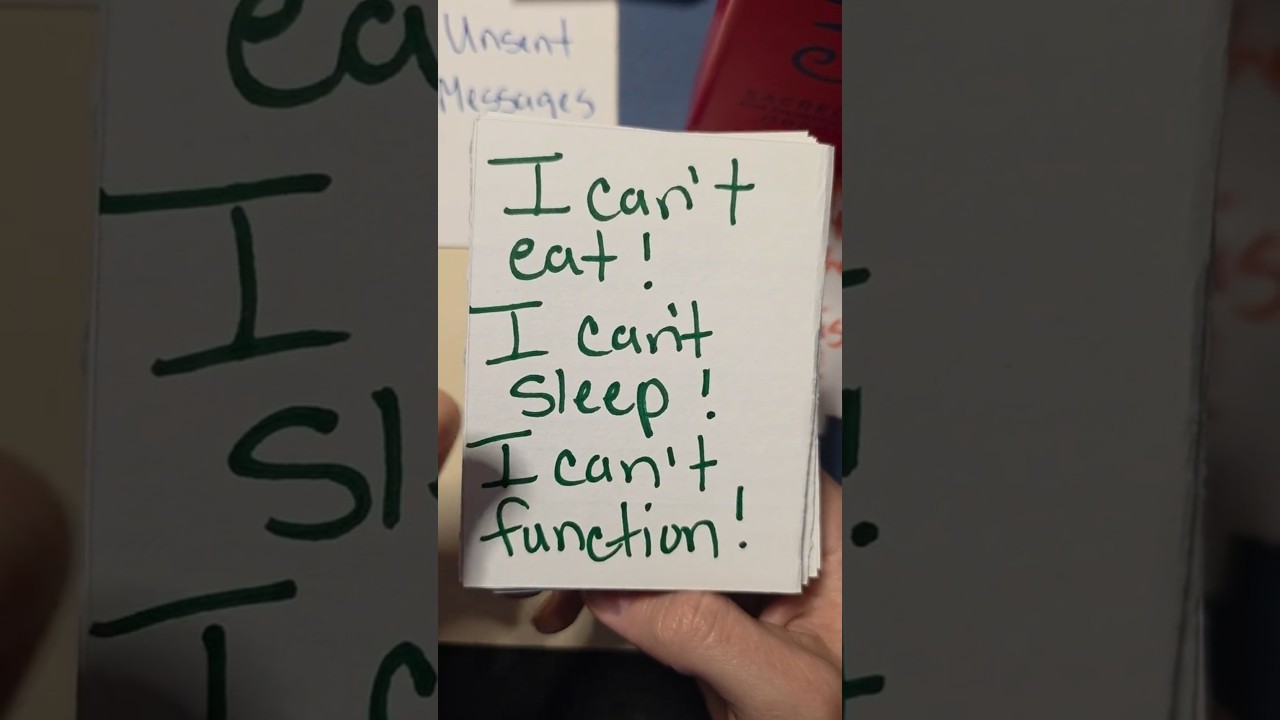 Unsent
Messages
I can't
eat!
I can't
sleep!
I can't
function!